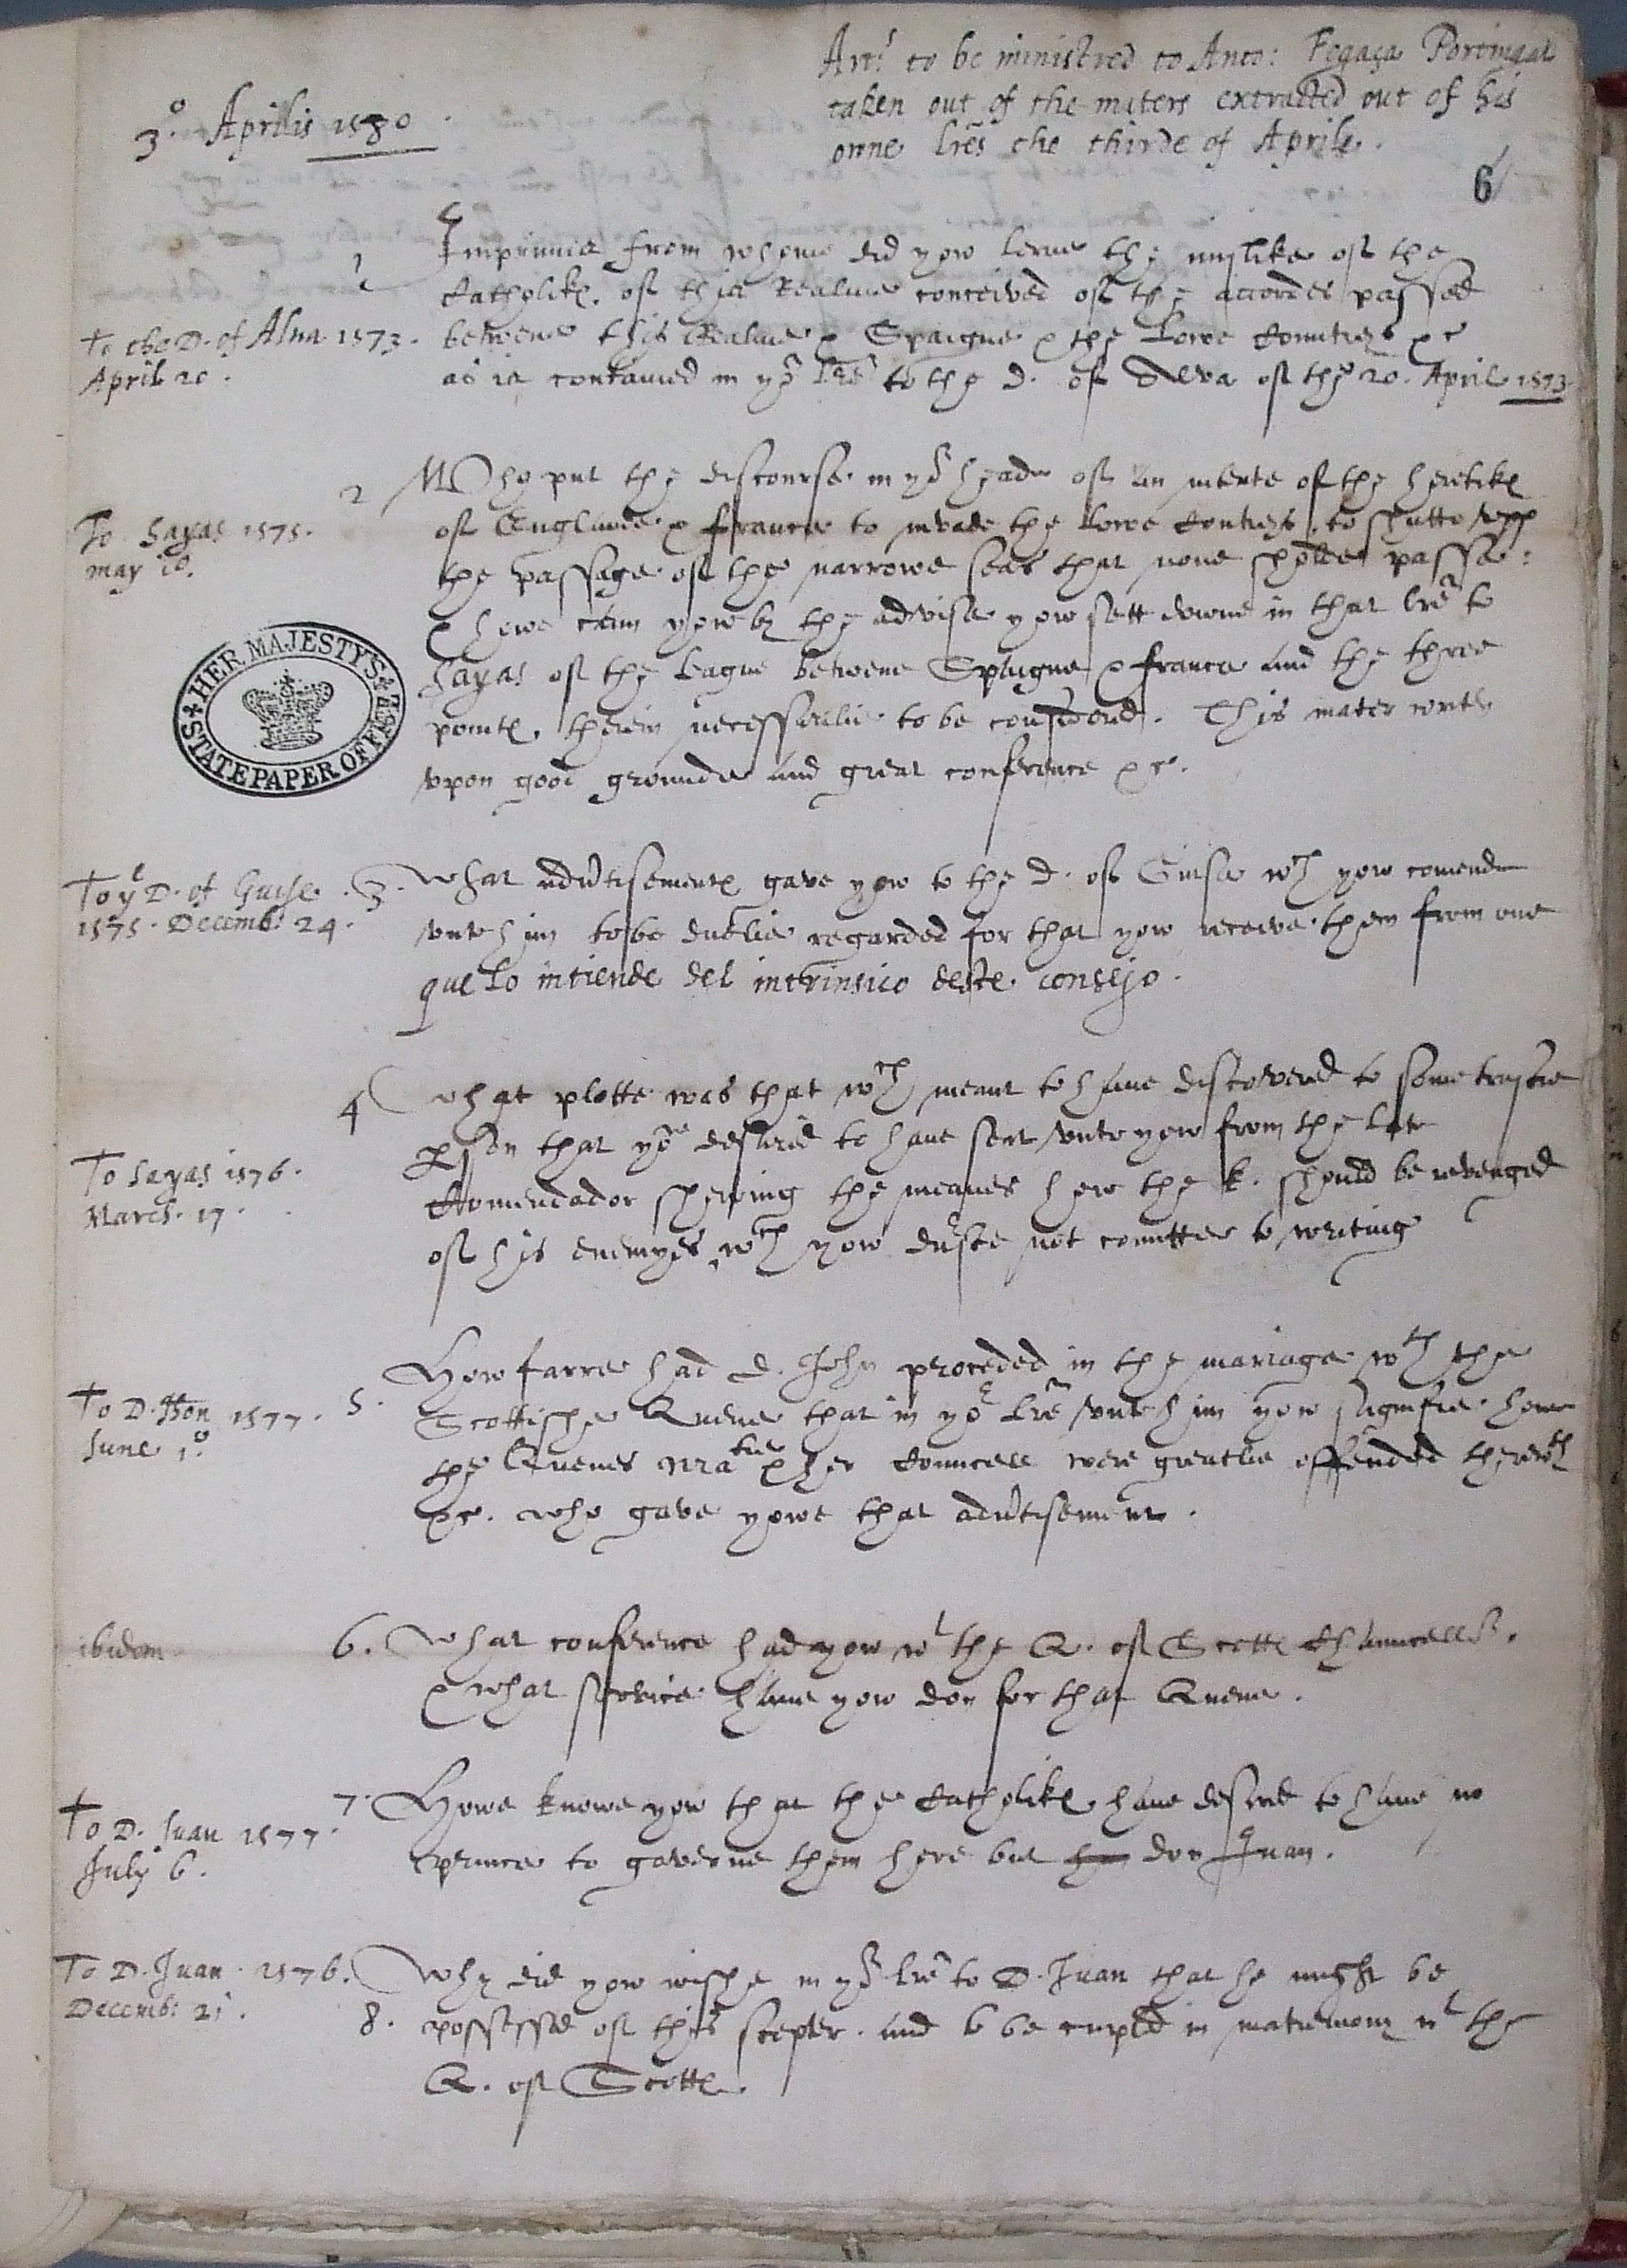 3.º Aprilis 1580.
Art: to be ministred to Anto: Fogaça Portingal
taken out of the maters extracted out of his
owne lrẽs the thirde of Aprile.
6
1
Imprimis from whome did yow lerne the mislike of the
Catholikes of this Realme conceived of the accordes passed
To the D. of Alua 1573.
April 20.
betwene this Realme & Spaigne & the Lowe Countreys &c
as is contained in yor lrẽ to the d. of Alva of the 20. April 1573
2
Who put the discourse in yor heade of an intente of the heretikes
To Sayas 1575.
may 10.
of Englande & Fraunce to invade the Lowe Contreys, to shutte upp
the passage of the narrowe seas that none sholde passe:
& howe cam yow by the advise yow sett downe in that lrẽ to
Sayas of the league betwene Spaigne & France and the three
pointes therein necessarilie to be considered. This mater
upon good grounde and great conference &c.
HER MAJESTY'S
STATE PAPER OFFICE
To ye D. of Guise
1575. Decemb: 24.
3. What advertisementes gave yow to the d. of Guise wch yow comende
unto him to be duelie regarded for that yow receive them from one
que lo intiende del intrinsico deste consejo.
4 What plotte was that wch meant to have discovered to some trustie
person that yow desired to have sent unto yow from the late
To Sayas 1576.
March. 17.
Comendador shewing the meanes how the k. should be revenged
of his enemyes, wch yow durste not comitte to writing
To D. Jhon 1577.
June 1º
5.
How farre had d. John proceded in the mariage wth the
Scottishe Quene that in yor lrẽ unto him yow signifie howe
the Quenes Matie & her Councell were greatlie offended therewth
&c. who gave yowe that advertisement.
ibidem
6. What conference had yow wt the Q. of Scottes Chauncellor.
& what service have yow don for that Quene.
To D. Juan 1577.
July 6.
7. Howe knowe yow that the Catholikes have desire to have no
prince to governe them here but don Juan.
To D. Juan. 1576.
Decemb: 21.
8.
Why did yow wishe in yor lrẽ to D. Juan that he might be
possessed of this scepter. and to be cupled in matrimony wt the
Q. of Scottes.